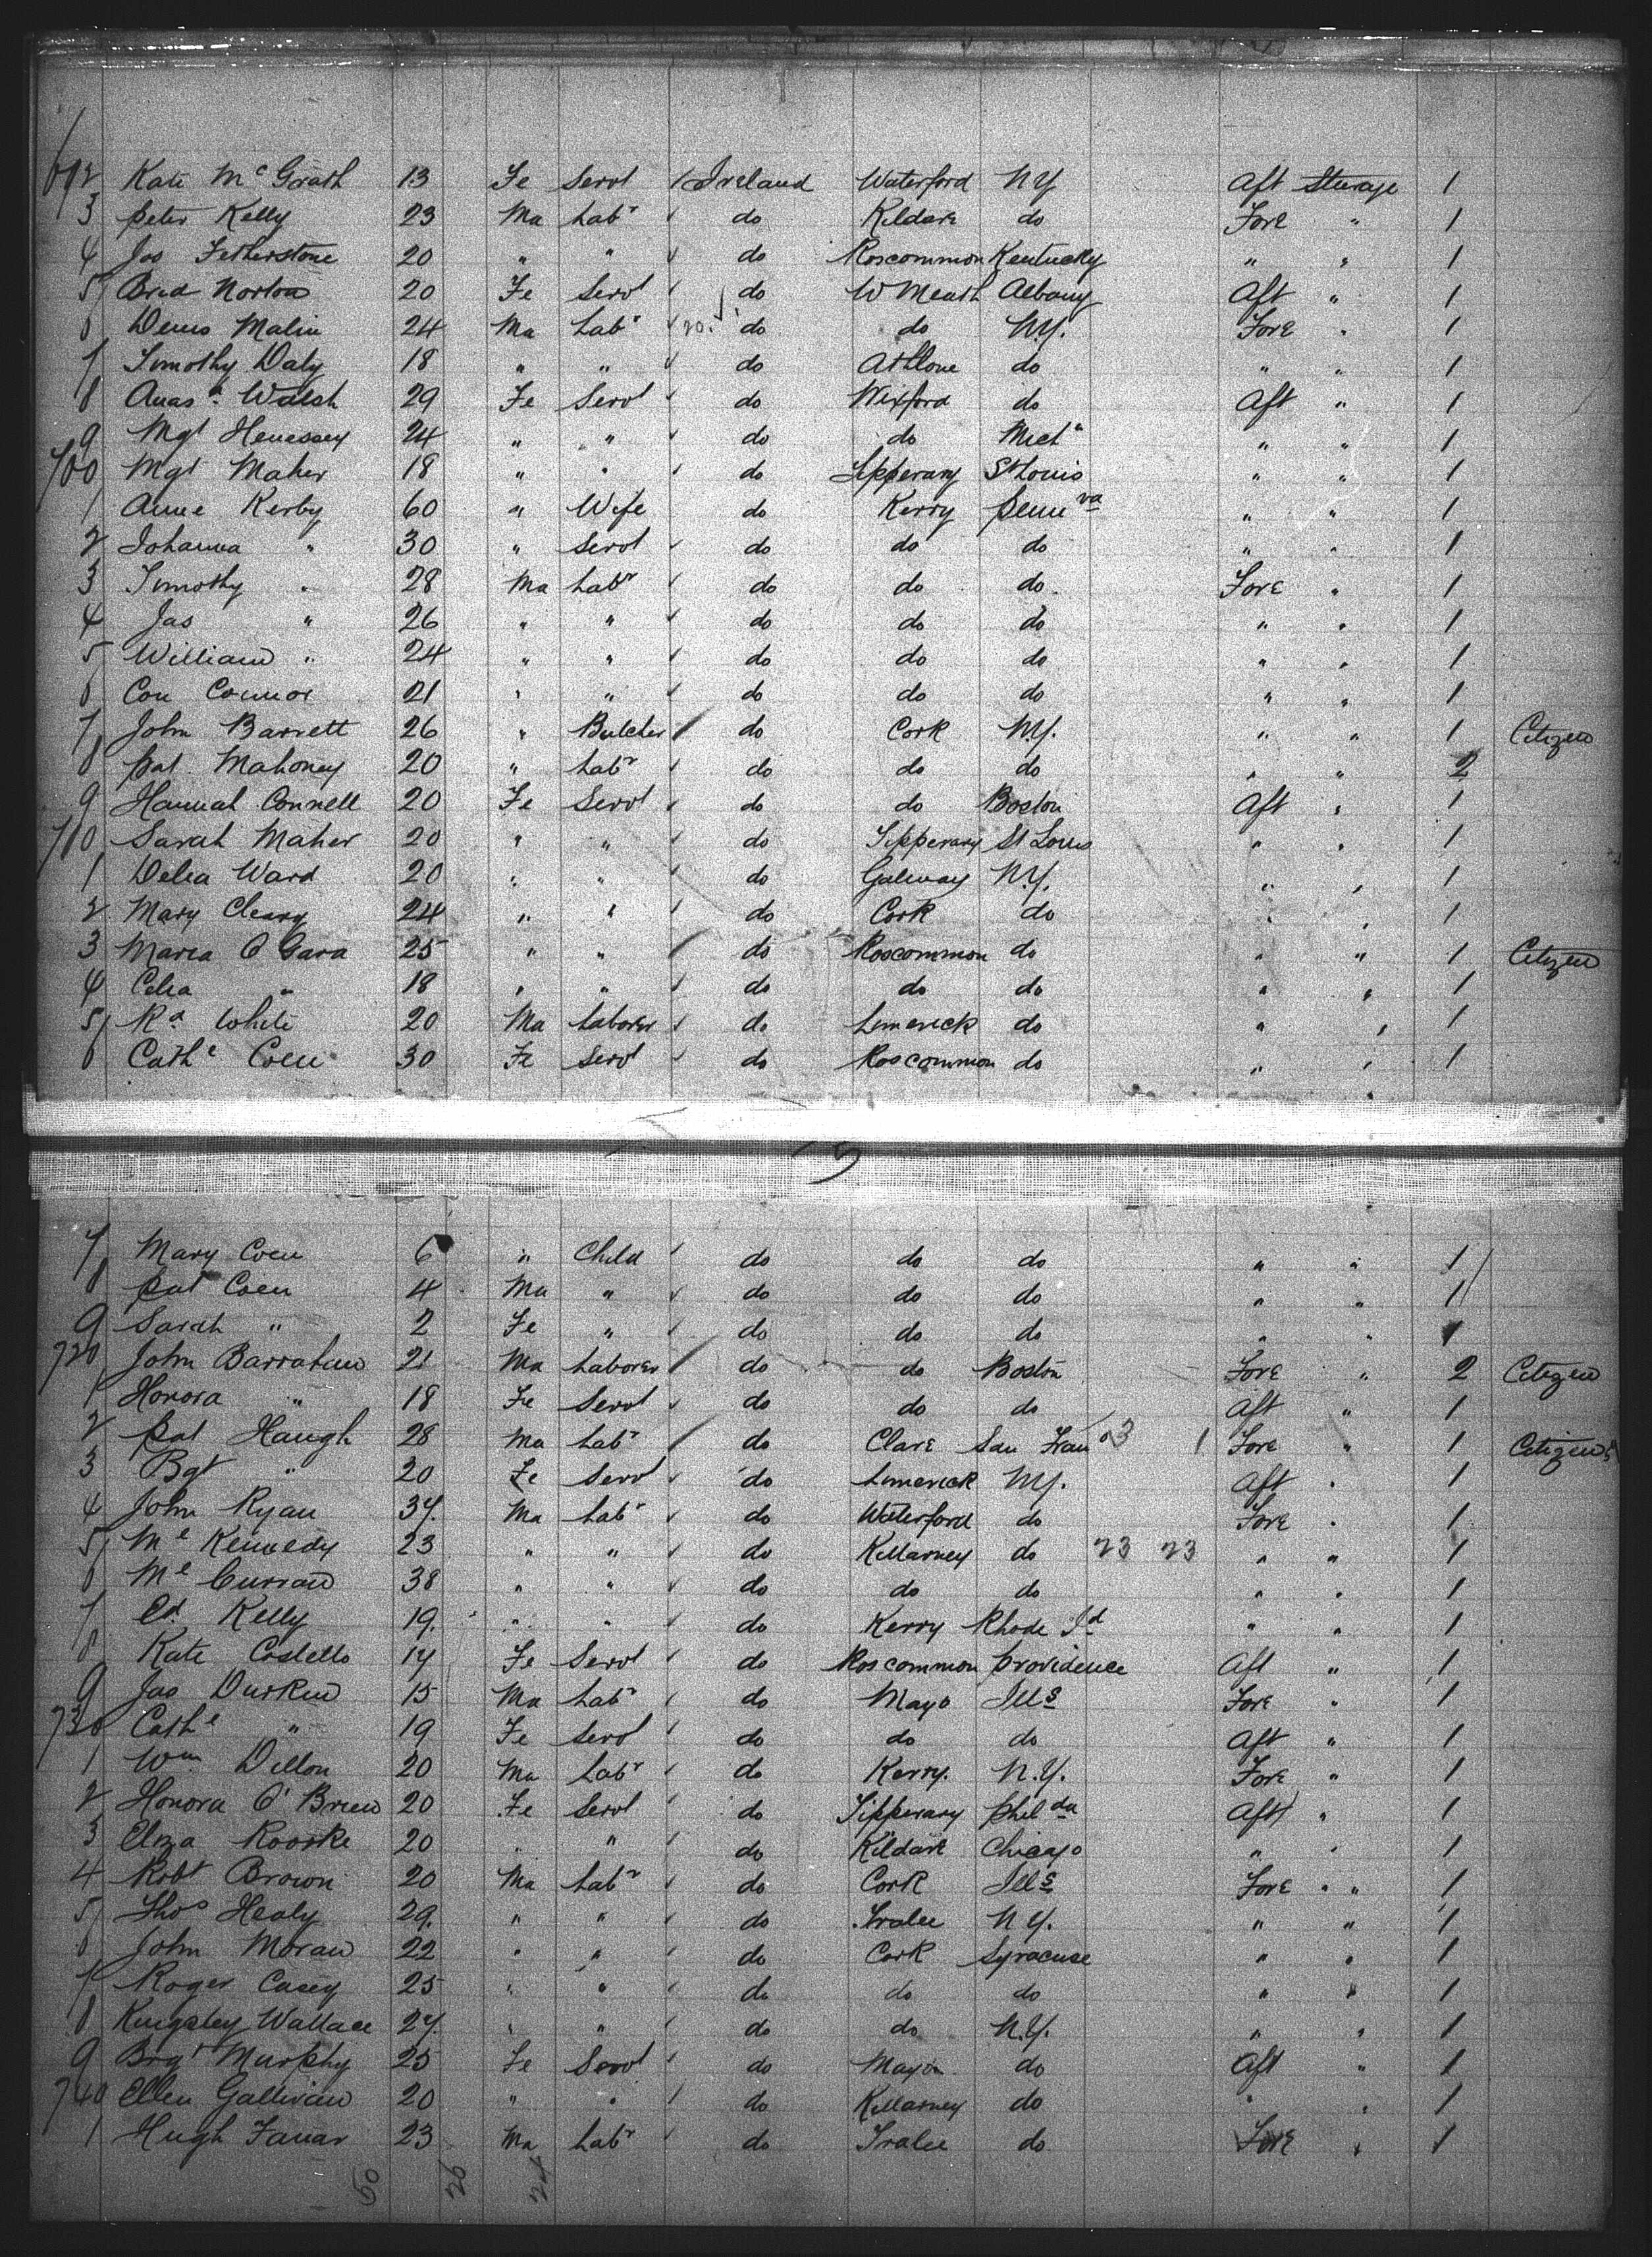 692 Kate McGrath 13 Fe Servt Ireland Waterford NY Aft Steerage 1
3 Peter Kelly 23 Ma Labr do Kildare do Fore " 1
4 Jas Fetherstone 20 " " do Roscommon Kentucky " " 1
5 Brid Norton 20 Fe Servt do W Meath Albany Aft " 1
6 Denis Malin 24 Ma Labr do do N.Y. Fore " 1
7 Timothy Daly 18 " " do Athlone do " " 1
8 Anasa Walsh 29 Fe Servt do Wexford do Aft " 1
9 Mgt Henessey 24 " " do do Mich " " 1
700 Mgt Maher 18 " " do Tipperary St Louis " " 1
1 Anne Kerby 60 " Wife do Kerry Pennva " " 1
2 Johanna " 30 " Servt do do do " " 1
3 Timothy " 28 Ma Labr do do do Fore " 1
4 Jas " 26 " " do do do " " 1
5 William " 24 " " do do do " " 1
6 Con Connor 21 " " do do do " " 1
7 John Barrett 26 " Butcher do Cork N.Y. " " 1 Citizen
8 Pat Mahoney 20 " Labr do do do " " 2
9 Hannah Connell 20 Fe Servt do do Boston Aft " 1
710 Sarah Maher 20 " " do Tipperary St Louis " " 1
1 Delia Ward 20 " " do Galway N.Y. " " 1
2 Mary Cleary 24 " " do Cork do " " 1
3 Maria O Gara 25 " " do Roscommon do " " 1 Citizen
4 Celia " 18 " " do do do " " 1
5 Rd White 20 Ma Laborer do Limerick do " " 1
6 Cathe Coen 30 Fe Servt do Roscommon do " " 1
7 Mary Coen 6 " Child do do do " " 1
8 Pat Coen 4 Ma " do do do " " 1
9 Sarah " 2 Fe " do do do " " 1
720 John Barrahan 21 Ma Laborer do do Boston Fore " 2 Citizen
1 Honora " 18 Fe Servt do do do Aft " 1
2 Pat Haugh 28 Ma Labr do Clare San Frano 3 1 Fore " 1 Citizen
3 Bgt " 20 Fe Servt do Limerick N.Y. Aft " 1
4 John Ryan 37 Ma Labr do Waterford do Fore " 1
5 Ml Kennedy 23 " " do Killarney do 23 23 " " 1
6 Ml Curran 38 " " do do do " " 1
7 Ed. Kelly 19. " " do Kerry Rhode Id " " 1
8 Kate Costello 17 Fe Servt do Roscommon Providence Aft " 1
9 Jas Durkin 15 Ma Labr do Mayo Ills Fore " 1
730 Cathe " 19 Fe Servt do do do Aft " 1
1 Wm Dillon 20 Ma Labr do Kerry. N.Y. Fore " 1
2 Honora O'Brien 20 Fe Servt do Tipperary Philda Aft " 1
3 Eliza Roorke 20 " " do Kildare Chicago " " 1
4 Robt Brown 20 Ma Labr do Cork Ills Fore " 1
5 Thos Healy 29. " " do Tralee N.Y. " " 1
6 John Moran 22 " " do Cork Syracuse " " 1
7 Roger Casey 25 " " do do do " " 1
8 Kingsley Wallace 27. " " do do N.Y. " " 1
9 Brgt Murphy 25 Fe Servt do Mayo do Aft " 1
740 Ellen Gallivan 20 " " do Killarney do " " 1
1 Hugh Fanar 23 Ma Labr do Tralee do Fore " 1
50 26 24